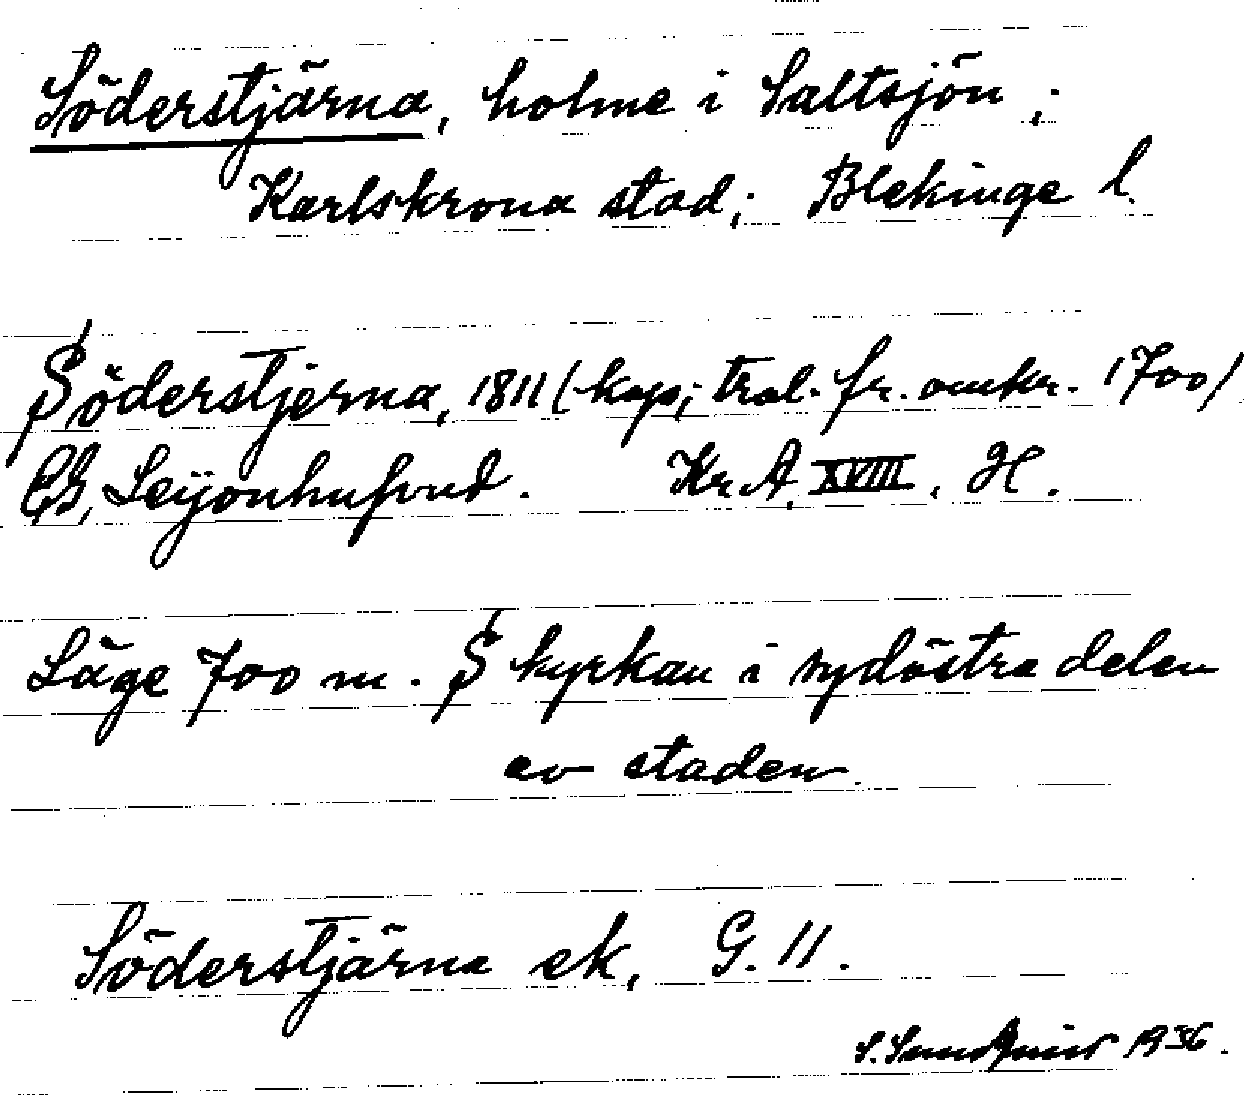 Söderstjärna, holme i Saltsjön;
Karlskrona stad; Blekinge l.
Söderstjerna, 1811 (kop; trol. fr. omkr. 1700)
CG, Leijonhufvud. Kr. A. XVIII, H.
Läge 700 m. S kyrkan i sydöstra delen
av staden.
Söderstjärna ek, G. 11.
S. Sundquist 1936.